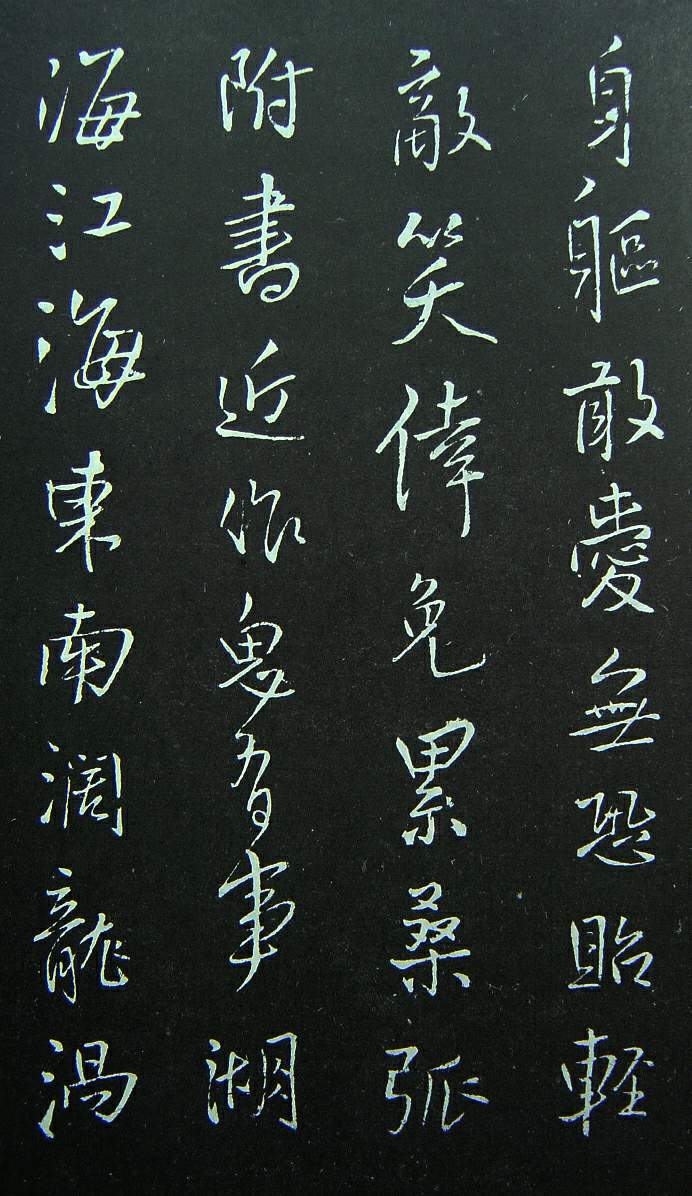 身軀敢愛無恐貽輕
敵笑倖免累桑弧
附書近作事湖
海江海東南濶龍渦